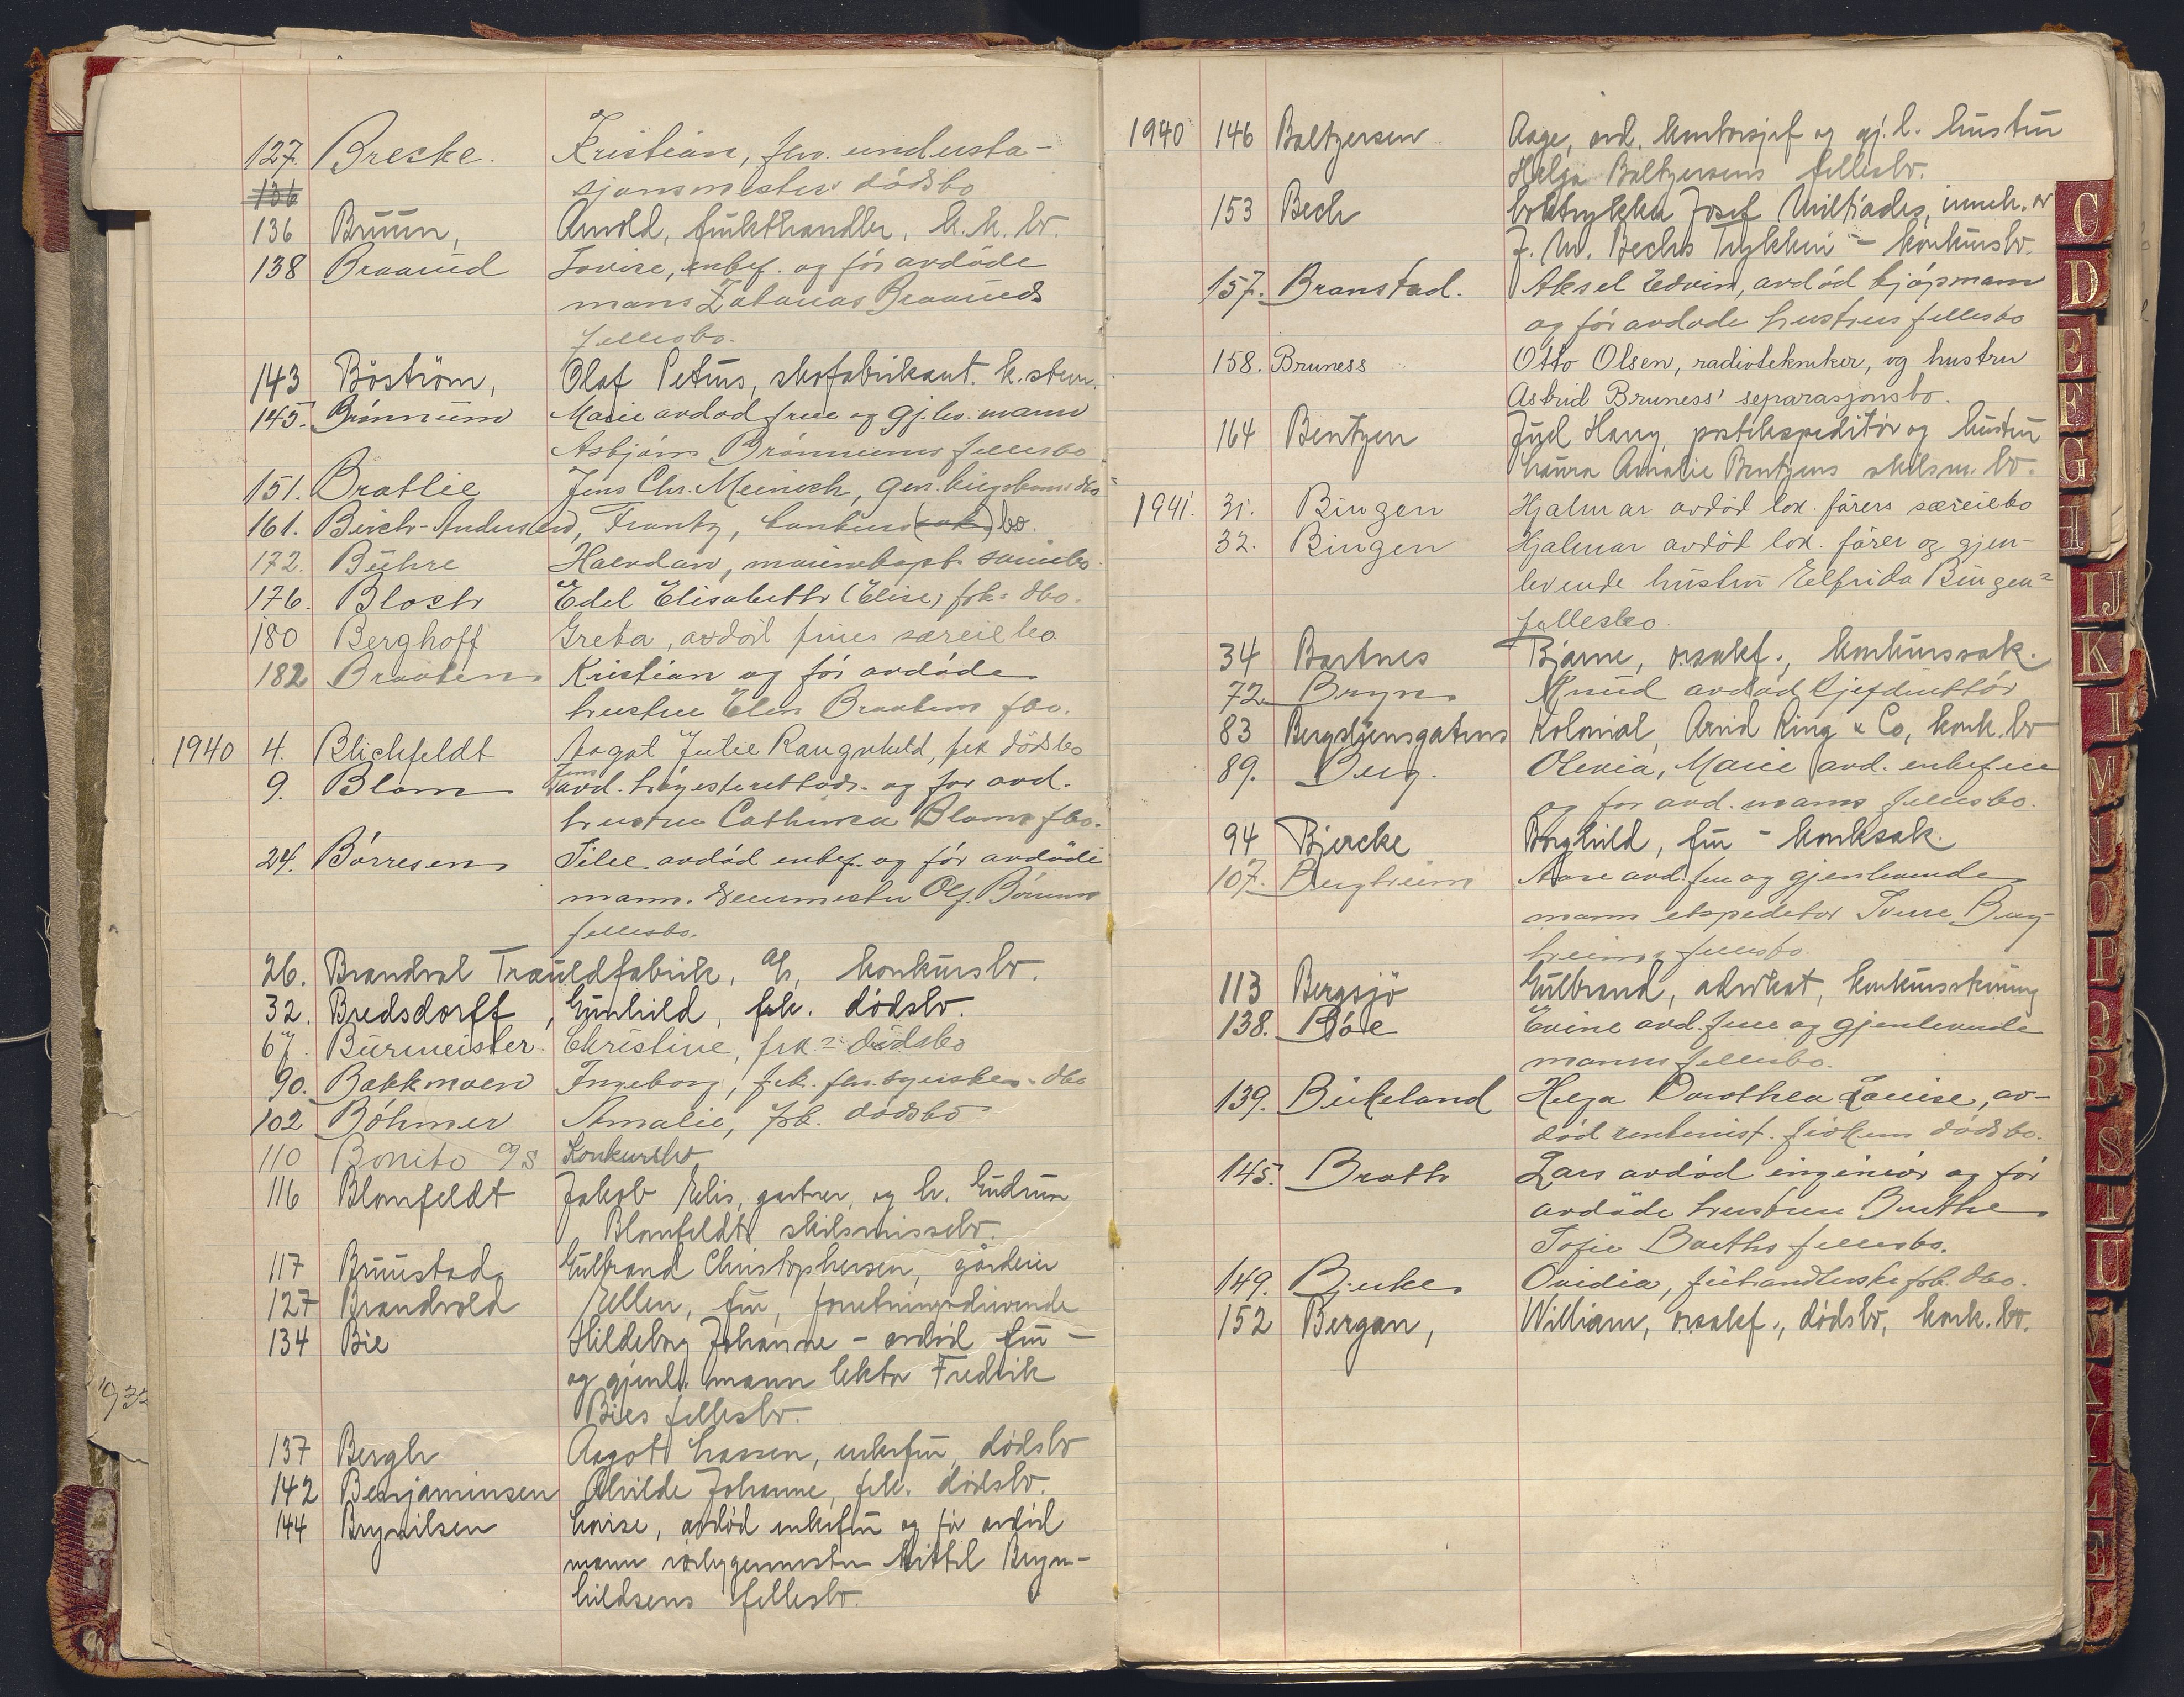 127. Brecke. Kristian, fhv. understa-
sjonsmesters dödsbo
136
136 Bruun, Arnold, frukthandler, k.k. bo.
138 Braarud Lovise, enkef. og för avdöde
manns Zakarias Braaruds
fellesbo.
143 Böström, Olaf Petrus, skofabrikant. k.
145. Brönnum Marie avdöd frue og gj.lev. mann
Asbjörn Brönnums fellesbo
151. Bratlie Jens Chr. Meinich, gen. krigskom. dbo
161. Birch-Andersen, Frantz, konkurs(sak) bo.
172. Bühre Halvdan, marinekapt.
176. Bloch Edel Elisabeth (Elise) frk. dbo.
180 Berghoff Greta, avdöd frues særeiebo
182 Braaten Kristian og för avdöde
hustru Elen Braatens fbo.
1940 4. Blichfeldt Aagot Julie Raugnhild, frk dödsbo
9. Blom Jens avd. höyesterettadv. og for avd.
hustru Cathinca Bloms fbo.
24. Börresen Tilee avdöd enkef. og för avdöde
mann. Olf. Börresens
fellesbo.
26. Brandval Trauldfabrik, A/s, konkursbo.
32. Bredsdorff, Gunhild, frk. dödsbo.
67. Burmeister Christine, frk. dödsbo
90. Bakkmoen Ingeborg, frk. fhv. sykepl. dbo
102 Böhmer Amalie, frk. dödsbo
110 Bonito A/S Konkursbo
116 Blomfeldt Jakob Elis, gartner, og h. Gudrun
Blomfeldts skilsmissebo.
117 Bruustad, Gulbrand Christophersen, gårdeier
127 Brandvold Ellen, fru, forretningsdrivende
134 Bie Hildeborg Johanne - avdöd fru -
og gjenl. mann lektor Fredrik
Bies fellesbo.
137 Bergh Aagot Lassen, enkefru, dödsbo
142 Benjaminsen Alvilde Johanne, frk. dödsbo.
144 Brynilsen Lovise, avdöd enkefru og för avdöd
mann rörleggermester Kittil Bryn-
hildsens fellesbo.
1940 146 Baltzersen Aage, avd. kontorsjef og gj.l. hustru
Helga Baltzersens fellesbo.
153 Bech boktrykker Josef Miltiades, inneh. av
J. M. Bechs Trykkeri - konkursbo.
157. Branstad. Aksel Edvin, avdöd kjöpmann
og för avdöde hustrus fellesbo
158. Bruness Otto Olsen, radiotekniker, og hustru
Astrid Bruness' separasjonsbo.
164 Bentzen Juel Harry, postekspeditör og hustru
Laura Amalie Bentzens skilsm. bo.
1941. 31. Bingen Hjalmar avdöd lok. förers særeiebo
32. Bingen Hjalmar avdöd lok. förer og gjen-
levende hustru Elfrida Bingens
fellesbo.
34 Bartnes Bjarne, o.r.sakf., konkurssak.
72. Bryn Knud avdöd sjefdirektör
83 Bergsliensgatens Kolonial, Arvid Ring & Co, konk. bo
89. Berg. Olevia, Marie avd. enkefrue
og for avd. manns fellesbo.
94 Bjercke Borghild, fru - konksak.
107. Bergheim Aase avd. frue og gjenlevende
mann ekspeditör Sverre Berg-
heims fellesbo.
113 Bergsjö Gulbrand, advokat, konkursåpning
138. Böe Evine avd. frue og gjenlevende
manns fellesbo.
139. Birkeland Helga Dorothea Louise, av-
död rentenist. fröken dödsbo.
145. Broth Lars avdöd ingeniör og för
avdöde hustru Berthe
Sofie Broths fellesbo.
149. Bjerke Ovidia, frk. dbo.
152 Bergan, William, o.r.sakf., dödsbo, konk. bo.
'932
C
D
E
F
G
H
IJ
K
L
M
N
O
P
Q
R
S
T
U